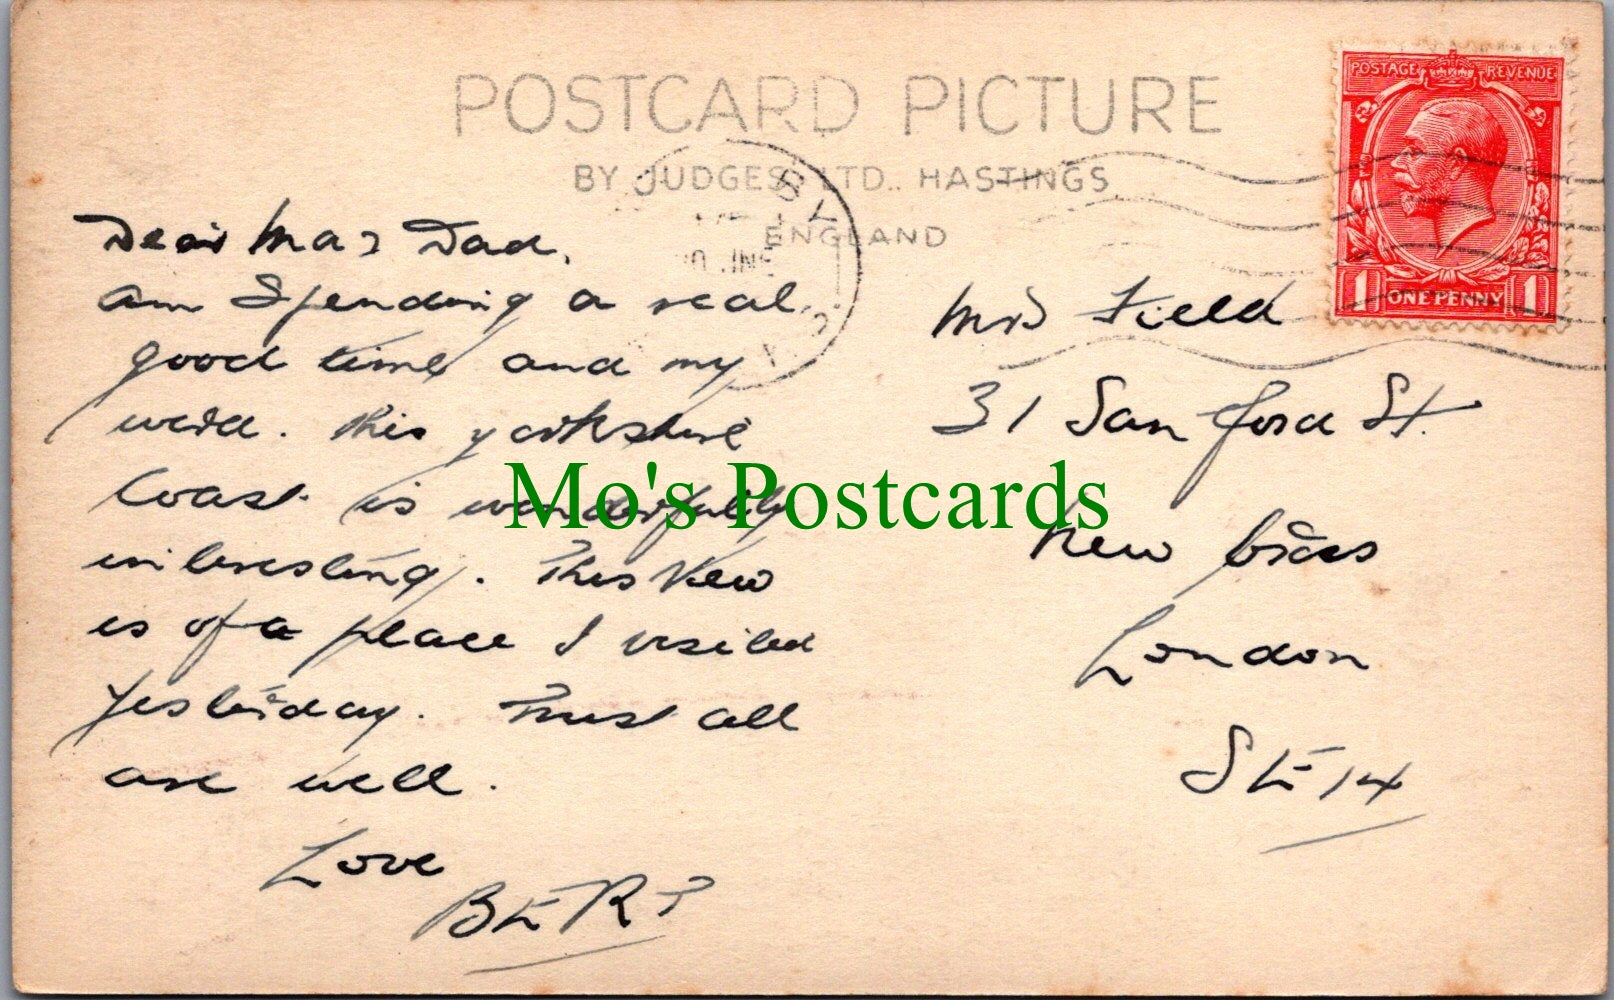 POSTCARD PICTURE
BY JUDGES LTD. HASTINGS
ENGLAND
POSTAGE REVENUE
1 ONE PENNY 1
Dear Ma & Dad,
am Spending a real
good time and my
word. This Yorkshire
Coast is wonderfully
interesting. This View
is of a place I visited
Yesterday. Trust all
are well.
Love
BERT
Mrs Field
31 Sanford St.
New Cross
London
SE 14
Mo's Postcards